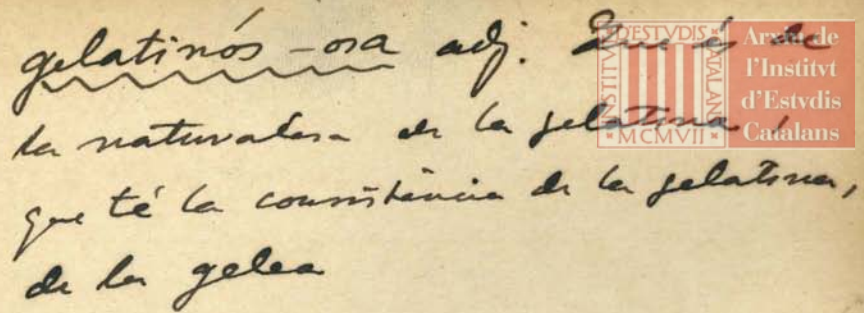 gelatinós -osa adj. Que és de
la naturalesa de la gelatina,
que té la consistència de la gelatina,
de la gelea
INSTITVT D'ESTVDIS CATALANS
MCMVII
Arxiu de
l'Institvt
d'Estvdis
Catalans